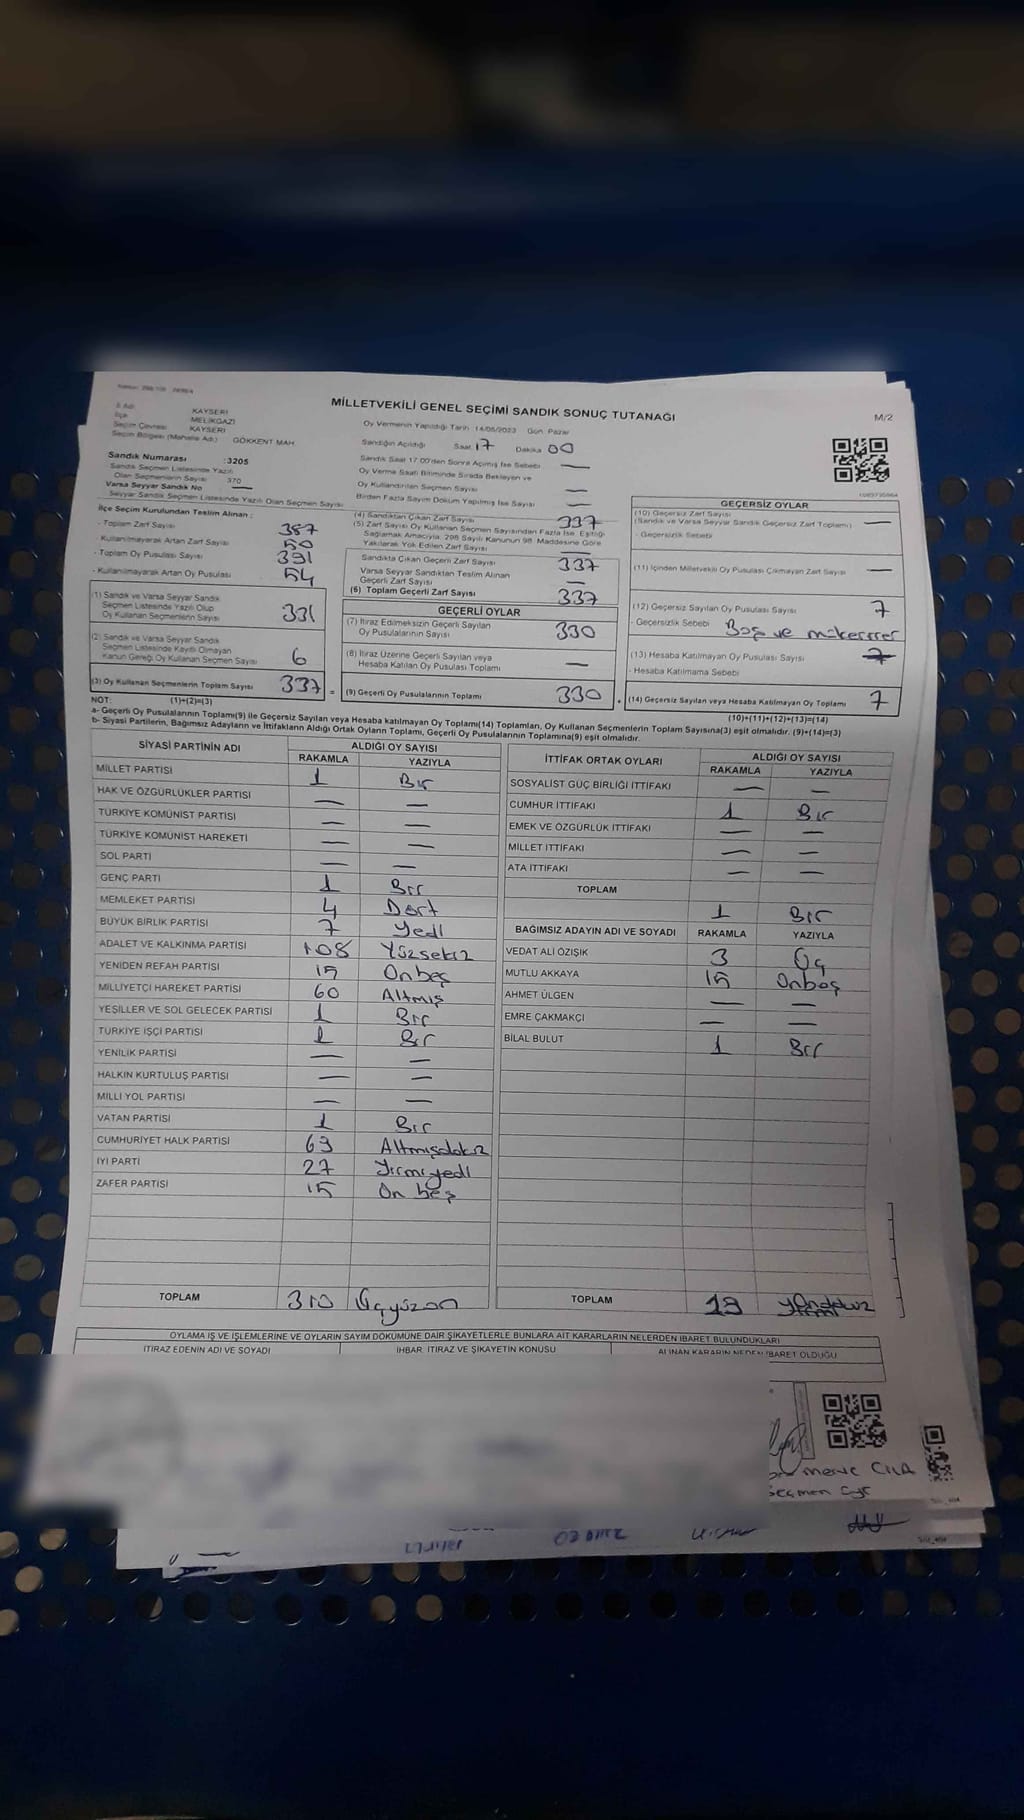 MİLLETVEKİLİ GENEL SEÇİMİ SANDIK SONUÇ TUTANAĞI
M/2
İl Adı KAYSERİ
İlçe MELİKGAZİ
Seçim Çevresi KAYSERİ
Seçim Bölgesi (Mahalle Adı) GÖKKENT MAH
Oy Vermenin Yapıldığı Tarih 14/05/2023 Gün Pazar
Sandığın Açıldığı Saat 17 Dakika 00
Sandık Numarası :3205
Sandık Seçmen Listesinde Yazılı
Olan Seçmenlerin Sayısı 370
Varsa Seyyar Sandık No —
Seyyar Sandık Seçmen Listesinde Yazılı Olan Seçmen Sayısı
Sandık Saat 17.00'den Sonra Açılmış İse Sebebi —
Oy Verme Saati Bitiminde Sırada Bekleyen ve
Oy Kullandırılan Seçmen Sayısı —
Birden Fazla Sayım Döküm Yapılmış İse Sayısı —
İlçe Seçim Kurulundan Teslim Alınan :
- Toplam Zarf Sayısı 387
- Kullanılmayarak Artan Zarf Sayısı 50
- Toplam Oy Pusulası Sayısı 391
- Kullanılmayarak Artan Oy Pusulası 54
(1) Sandık ve Varsa Seyyar Sandık
Seçmen Listesinde Yazılı Olup
Oy Kullanan Seçmenlerin Sayısı 331
(2) Sandık ve Varsa Seyyar Sandık
Seçmen Listesinde Kayıtlı Olmayan
Kanun Gereği Oy Kullanan Seçmen Sayısı 6
(3) Oy Kullanan Seçmenlerin Toplam Sayısı 337
(4) Sandıktan Çıkan Zarf Sayısı 337
(5) Zarf Sayısı Oy Kullanan Seçmen Sayısından Fazla İse, Eşitliği
Sağlamak Amacıyla, 298 Sayılı Kanunun 98. Maddesine Göre
Yakılarak Yok Edilen Zarf Sayısı —
Sandıkta Çıkan Geçerli Zarf Sayısı 337
Varsa Seyyar Sandıktan Teslim Alınan
Geçerli Zarf Sayısı —
(6) Toplam Geçerli Zarf Sayısı 337
GEÇERLİ OYLAR
(7) İtiraz Edilmeksizin Geçerli Sayılan
Oy Pusulalarının Sayısı 330
(8) İtiraz Üzerine Geçerli Sayılan veya
Hesaba Katılan Oy Pusulası Toplamı —
(9) Geçerli Oy Pusulalarının Toplamı 330
GEÇERSİZ OYLAR
(10) Geçersiz Zarf Sayısı
(Sandık ve Varsa Seyyar Sandık Geçersiz Zarf Toplamı) —
- Geçersizlik Sebebi
(11) İçinden Milletvekili Oy Pusulası Çıkmayan Zarf Sayısı —
(12) Geçersiz Sayılan Oy Pusulası Sayısı 7
- Geçersizlik Sebebi Boş ve mükerrer
(13) Hesaba Katılmayan Oy Pusulası Sayısı 7
- Hesaba Katılmama Sebebi
(14) Geçersiz Sayılan veya Hesaba Katılmayan Oy Toplamı 7
NOT: (1)+(2)=(3)
(10)+(11)+(12)+(13)=(14)
a- Geçerli Oy Pusulalarının Toplamı(9) ile Geçersiz Sayılan veya Hesaba katılmayan Oy Toplamı(14) Toplamları, Oy Kullanan Seçmenlerin Toplam Sayısına(3) eşit olmalıdır. (9)+(14)=(3)
b- Siyasi Partilerin, Bağımsız Adayların ve İttifakların Aldığı Ortak Oyların Toplamı, Geçerli Oy Pusulalarının Toplamına(9) eşit olmalıdır.
SİYASİ PARTİNİN ADI ALDIĞI OY SAYISI
RAKAMLA YAZIYLA
MİLLET PARTİSİ 1 Bir
HAK VE ÖZGÜRLÜKLER PARTİSİ — —
TÜRKİYE KOMÜNİST PARTİSİ — —
TÜRKİYE KOMÜNİST HAREKETİ — —
SOL PARTİ — —
GENÇ PARTİ 1 Bir
MEMLEKET PARTİSİ 4 Dört
BÜYÜK BİRLİK PARTİSİ 7 Yedi
ADALET VE KALKINMA PARTİSİ 108 Yüzsekiz
YENİDEN REFAH PARTİSİ 15 Onbeş
MİLLİYETÇİ HAREKET PARTİSİ 60 Altmış
YEŞİLLER VE SOL GELECEK PARTİSİ 1 Bir
TÜRKİYE İŞÇİ PARTİSİ 1 Bir
YENİLİK PARTİSİ — —
HALKIN KURTULUŞ PARTİSİ — —
MİLLİ YOL PARTİSİ — —
VATAN PARTİSİ 1 Bir
CUMHURİYET HALK PARTİSİ 69 Altmışdokuz
İYİ PARTİ 27 Yirmiyedi
ZAFER PARTİSİ 15 On beş
TOPLAM 310 Üçyüzon
İTTİFAK ORTAK OYLARI ALDIĞI OY SAYISI
RAKAMLA YAZIYLA
SOSYALİST GÜÇ BİRLİĞİ İTTİFAKI — —
CUMHUR İTTİFAKI 1 Bir
EMEK VE ÖZGÜRLÜK İTTİFAKI — —
MİLLET İTTİFAKI — —
ATA İTTİFAKI — —
TOPLAM 1 Bir
BAĞIMSIZ ADAYIN ADI VE SOYADI RAKAMLA YAZIYLA
VEDAT ALİ ÖZIŞIK 3 Üç
MUTLU AKKAYA 15 Onbeş
AHMET ÜLGEN — —
EMRE ÇAKMAKÇI — —
BİLAL BULUT 1 Bir
TOPLAM 19
OYLAMA İŞ VE İŞLEMLERİNE VE OYLARIN SAYIM DÖKÜMÜNE DAİR ŞİKAYETLERLE BUNLARA AİT KARARLARIN NELERDEN İBARET BULUNDUKLARI
İTİRAZ EDENİN ADI VE SOYADI İHBAR, İTİRAZ VE ŞİKAYETİN KONUSU ALINAN KARARIN NEDEN İBARET OLDUĞU